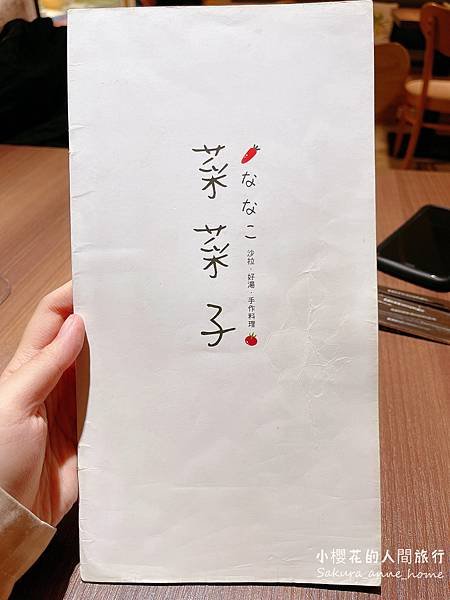 菜菜子
ななこ
沙拉·好湯·手作料理
小櫻花的人間旅行
Sakura_anne_home